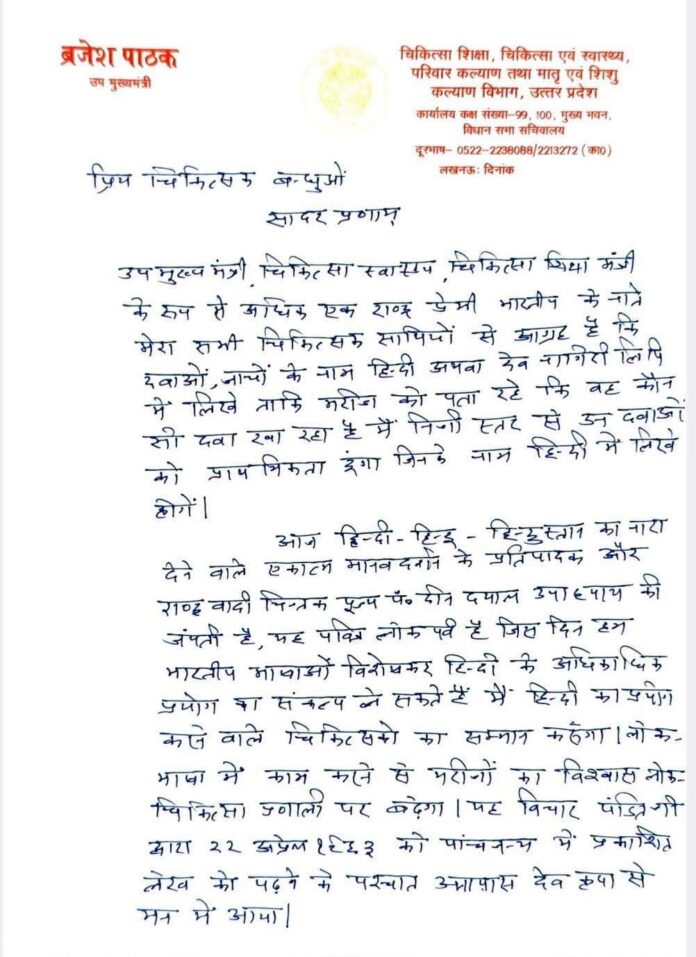 ब्रजेश पाठक
उप मुख्यमंत्री
चिकित्सा शिक्षा, चिकित्सा एवं स्वास्थ्य,
परिवार कल्याण तथा मातृ एवं शिशु
कल्याण विभाग, उत्तर प्रदेश
कार्यालय कक्ष संख्या–99, 100, मुख्य भवन,
विधान सभा सचिवालय
दूरभाष– 0522–2238088/2213272 (का0)
लखनऊः दिनांक
प्रिय चिकित्सक बन्धुओं
सादर प्रणाम्
उप मुख्य मंत्री, चिकित्सा स्वास्थ्य, चिकित्सा शिक्षा मंत्री
के रूप से अधिक एक राष्ट्र प्रेमी भारतीय के नाते
मेरा सभी चिकित्सक साथियों से आग्रह है कि
दवाओं, जाचों के नाम हिदी अथवा देव नागिरी लिपि
में लिखे ताकि मरीज को पता रहे कि वह कौन
सी दवा खा रहा है मैं निजी स्तर से उन दवाओं
को प्राथमिकता दूंगा जिनके नाम हिन्दी में लिखे
होगें।
आज हिन्दी - हिन्दू - हिन्दुस्तान का नारा
देने वाले एकात्म मानवदर्शन के प्रतिपादक और
राष्ट्रवादी चिन्तक पूज्य पं० दीन दयाल उपाध्याय की
जंयती है, यह पवित्र लोकपर्व है जिस दिन हम
भारतीय भाषाओं विशेषकर हिन्दी के अधिकाधिक
प्रयोग का संकल्प ले सकते हैं मैं हिन्दी का प्रयोग
करने वाले चिकित्सको का सम्मान करूंगा। लोक-
भाषा में काम करने से मरीजों का विश्वास लोक-
चिकित्सा प्रणाली पर बढ़ेगा। यह विचार पंडितजी
द्वारा २२ अप्रैल १९६३ को पांचजन्य में प्रकाशित
लेख को पढ़ने के पश्चात अनायास देव कृपा से
मन में आया।